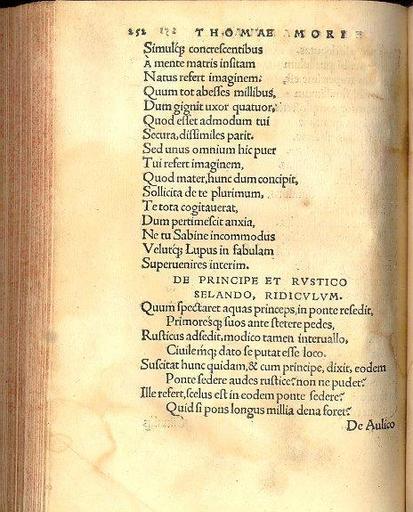 252 THOMAE MORI
Simulq́; concrescentibus
À mente matris insitam
Natus refert imaginem:
Quum tot abesses millibus,
Dum gignit uxor quatuor,
Quod esset admodum tui
Secura, dissimiles parit.
Sed unus omnium hic puer
Tui refert imaginem,
Quod mater, hunc dum concipit,
Sollicita de te plurimum,
Te tota cogitauerat,
Dum pertimescit anxia,
Ne tu Sabine incommodus
Velutq́; Lupus in fabulam
Superuenires interim.
DE PRINCIPE ET RVSTICO
SELANDO, RIDICVLVM.
Quum spectaret aquas princeps, in ponte resedit,
Primoresq́; suos ante stetere pedes,
Rusticus adsedit, modico tamen interuallo,
Ciuilemq́; dato se putat esse loco.
Suscitat hunc quidam, & cum principe, dixit, eodem
Ponte sedere audes rustice? non ne pudet?
Ille refert, scelus est in eodem ponte sedere?
Quid si pons longus millia dena foret?
De Aulico